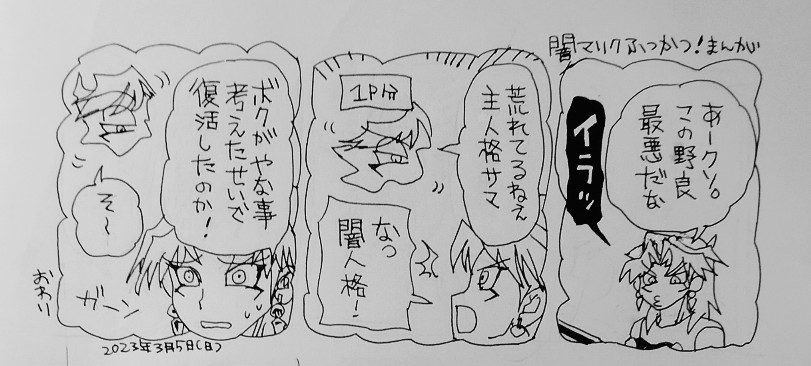 闇マリクふっかつ!まんが
あークソ。
この野良
最悪だな
イラッ
荒れてるねえ
主人格サマ
1P分
なっ
闇人格!
ボクがやな事
考えたせいで
復活したのか!
そ〜
ガーン
おわり
2023年3月5日(日)